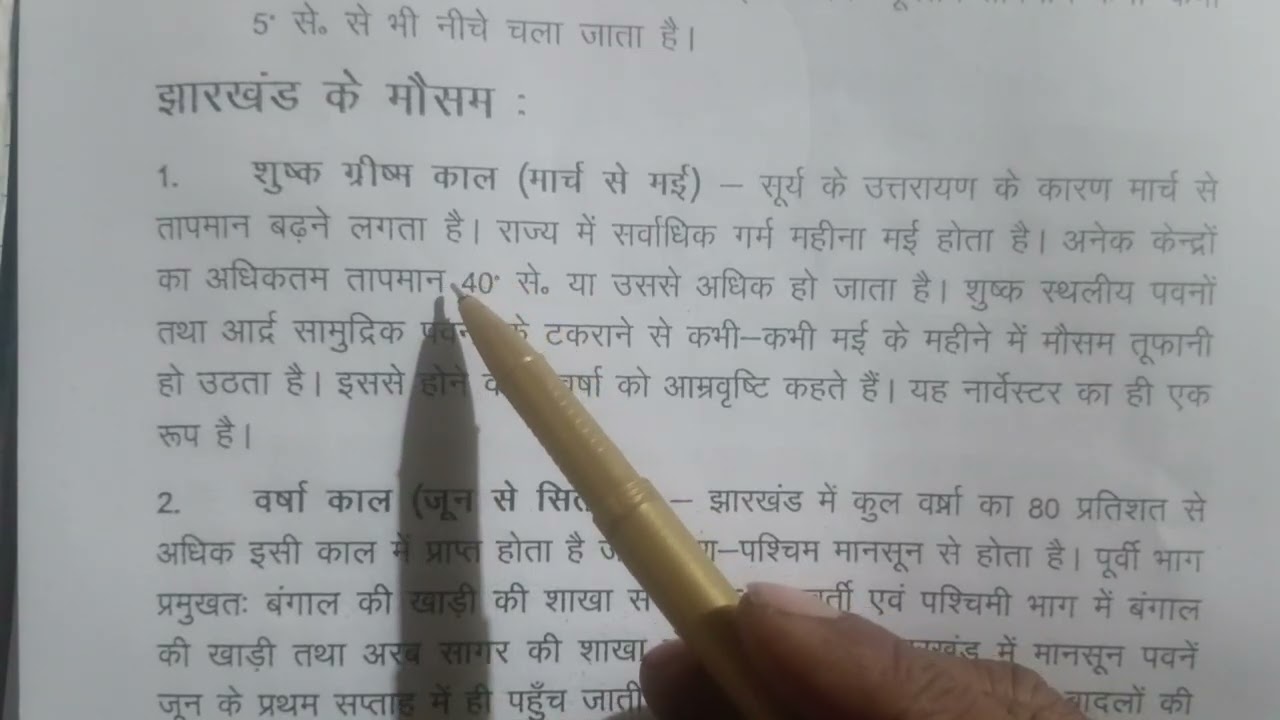 5° से० से भी नीचे चला जाता है।
झारखंड के मौसम :
1. शुष्क ग्रीष्म काल (मार्च से मई) – सूर्य के उत्तरायण के कारण मार्च से
तापमान बढ़ने लगता है। राज्य में सर्वाधिक गर्म महीना मई होता है। अनेक केन्द्रों
का अधिकतम तापमान 40° से० या उससे अधिक हो जाता है। शुष्क स्थलीय पवनों
तथा आर्द्र सामुद्रिक के टकराने से कभी–कभी मई के महीने में मौसम तूफानी
हो उठता है। इससे होने वर्षा को आम्रवृष्टि कहते हैं। यह नार्वेस्टर का ही एक
रूप है।
2. वर्षा काल (जून से – झारखंड में कुल वर्षा का 80 प्रतिशत से
अधिक इसी काल में प्राप्त होता है –पश्चिम मानसून से होता है। पूर्वी भाग
प्रमुखतः बंगाल की खाड़ी की शाखा एवं पश्चिमी भाग में बंगाल
की खाड़ी तथा अरब सागर की शाखा में मानसून पवनें
जून के प्रथम सप्ताह में ही पहुँच जाती बादलों की